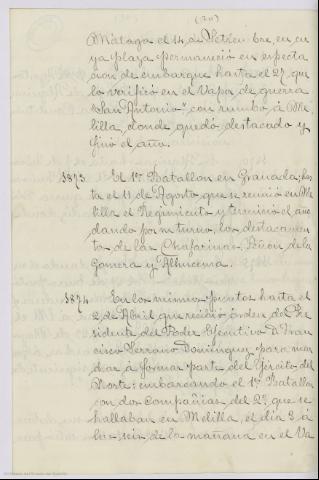 (20)
á Málaga el 14 de Setiembre, en cu
ya plaza permaneció en especta
ción de embarque hasta el 27, que
lo verificó en el Vapor de guerra
"San Antonio", con rumbo á Me
lilla, donde quedó destacado y
finó el año.
1873 El 1er Batallon en Granada; has
ta el 11 de Agosto que se reunió en Me
lilla el Regimiento y terminó el año
dando por su turno, los destacamen
tos de las Chafarinas, Peñon de la
Gomera y Alhucema.
1874 En los mismos puntos hasta el
2 de Abril que recibió órden del Pre
sidente del Poder Ejecutivo D. Fran
cisco Serrano Dominguez, para mar
char á formar parte del Ejército del
Norte: embarcando el 1er Batallon
con dos compañías del 2º, que se
hallaban en Melilla, el dia 3 á
las seis de la mañana en el Va